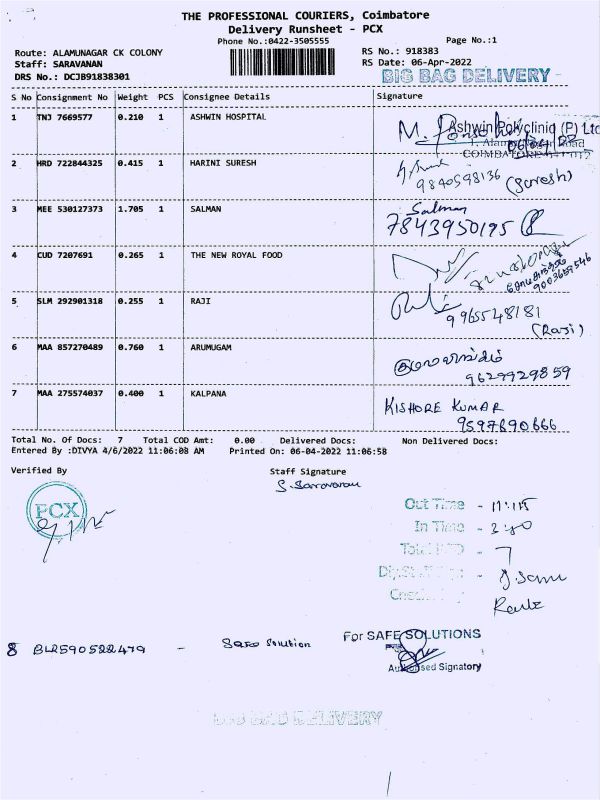 THE PROFESSIONAL COURIERS, Coimbatore
Delivery Runsheet - PCX
Phone No.:0422-3505555
Page No.:1
Route: ALAMUNAGAR CK COLONY
RS No.: 918383
Staff: SARAVANAN
RS Date: 06-Apr-2022
DRS No.: DCJB91838301
BIG BAG DELIVERY
S No Consignment No Weight PCS Consignee Details Signature
1 TNJ 7669577 0.210 1 ASHWIN HOSPITAL
Ashwin Polyclinic (P) Ltd
2 HRD 722844325 0.415 1 HARINI SURESH
9840598136 (Suresh)
3 MEE 530127373 1.705 1 SALMAN
Salman
7843950195
4 CUD 7207691 0.265 1 THE NEW ROYAL FOOD
9003659546
5 SLM 292901318 0.255 1 RAJI
9965548181
(Raji)
6 MAA 857270489 0.760 1 ARUMUGAM
9629929859
7 MAA 275574037 0.400 1 KALPANA
KISHORE KUMAR
9597890666
Total No. Of Docs: 7 Total COD Amt: 0.00 Delivered Docs: Non Delivered Docs:
Entered By :DIVYA 4/6/2022 11:06:08 AM Printed On: 06-04-2022 11:06:58
Verified By
Staff Signature
PCX
S. Saravanan
Out Time - 11:15
In Time -
Total - 7
8 BLR590522479 - Safe Solution
For SAFE SOLUTIONS
Authorised Signatory
BIG BAG DELIVERY